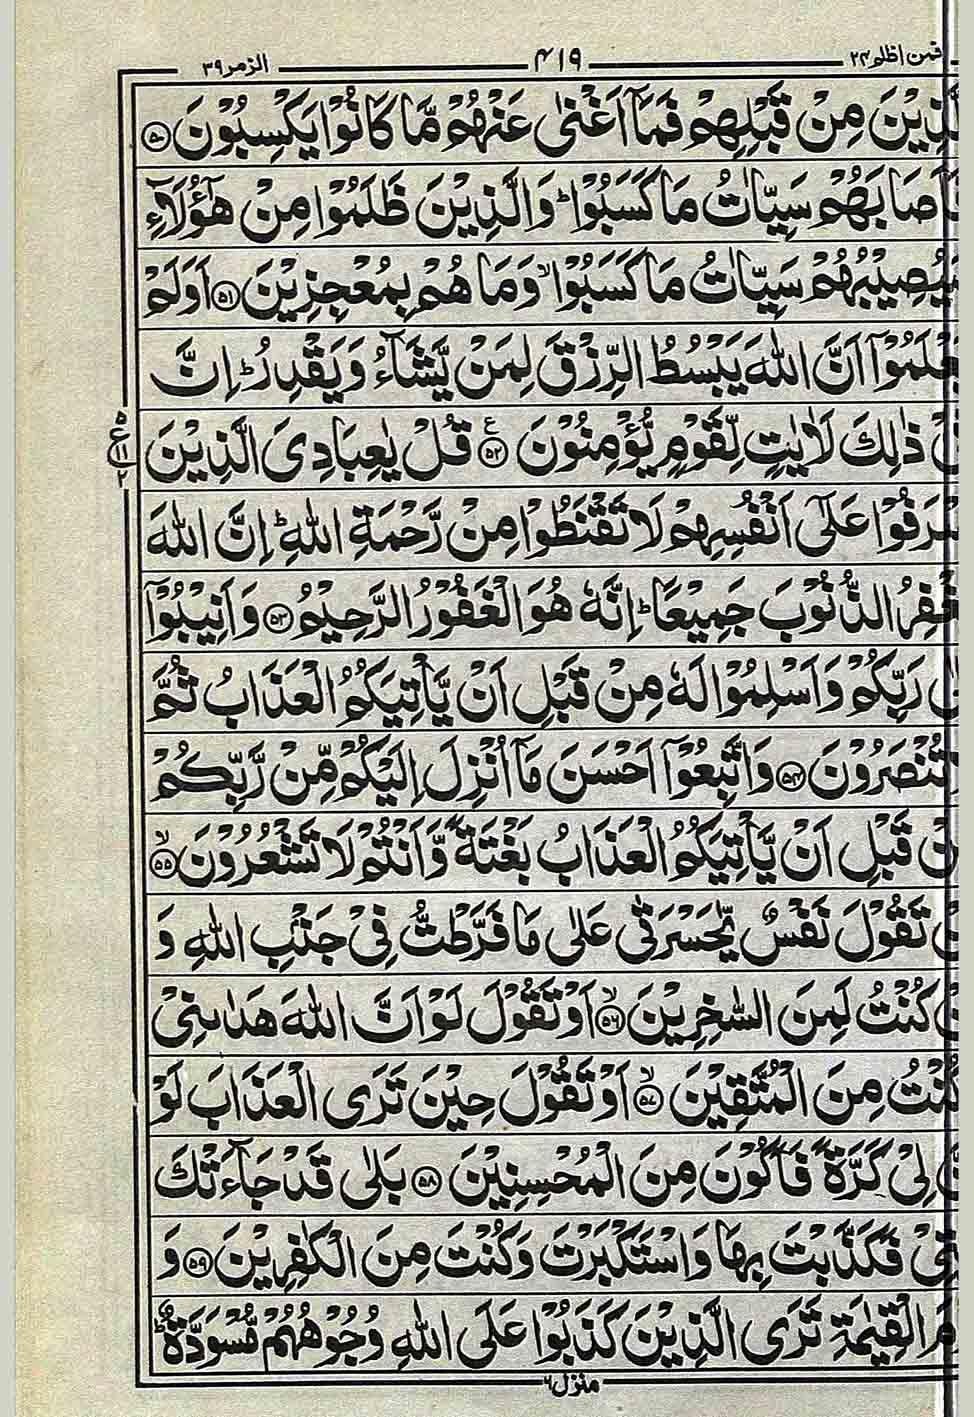 فمن اظلم ٢٤ ٤١٩ الزمر ٣٩
الَّذِيْنَ مِنْ قَبْلِهِمْ فَمَآ اَغْنٰى عَنْهُمْ مَّا كَانُوْا يَكْسِبُوْنَ ﴿٥٠﴾
فَاَصَابَهُمْ سَيِّاٰتُ مَا كَسَبُوْا ؕ وَالَّذِيْنَ ظَلَمُوْا مِنْ هٰٓؤُلَآءِ
سَيُصِيْبُهُمْ سَيِّاٰتُ مَا كَسَبُوْا ۙ وَمَا هُمْ بِمُعْجِزِيْنَ ﴿٥١﴾ اَوَلَمْ
يَعْلَمُوْٓا اَنَّ اللّٰهَ يَبْسُطُ الرِّزْقَ لِمَنْ يَّشَآءُ وَيَقْدِرُ ؕ اِنَّ
فِيْ ذٰلِكَ لَاٰيٰتٍ لِّقَوْمٍ يُّؤْمِنُوْنَ ﴿٥٢﴾ ع قُلْ يٰعِبَادِىَ الَّذِيْنَ
٥ ع ١١ ٢
اَسْرَفُوْا عَلٰٓى اَنْفُسِهِمْ لَا تَقْنَطُوْا مِنْ رَّحْمَةِ اللّٰهِ ؕ اِنَّ اللّٰهَ
يَغْفِرُ الذُّنُوْبَ جَمِيْعًا ؕ اِنَّهٗ هُوَ الْغَفُوْرُ الرَّحِيْمُ ﴿٥٣﴾ وَاَنِيْبُوْٓا
اِلٰى رَبِّكُمْ وَاَسْلِمُوْا لَهٗ مِنْ قَبْلِ اَنْ يَّاْتِيَكُمُ الْعَذَابُ ثُمَّ
لَا تُنْصَرُوْنَ ﴿٥٤﴾ وَاتَّبِعُوْٓا اَحْسَنَ مَآ اُنْزِلَ اِلَيْكُمْ مِّنْ رَّبِّكُمْ
مِّنْ قَبْلِ اَنْ يَّاْتِيَكُمُ الْعَذَابُ بَغْتَةً وَّاَنْتُمْ لَا تَشْعُرُوْنَ ﴿٥٥﴾ ۙ
اَنْ تَقُوْلَ نَفْسٌ يّٰحَسْرَتٰى عَلٰى مَا فَرَّطْتُّ فِيْ جَنْۢبِ اللّٰهِ وَ
اِنْ كُنْتُ لَمِنَ السّٰخِرِيْنَ ﴿٥٦﴾ ۙ اَوْ تَقُوْلَ لَوْ اَنَّ اللّٰهَ هَدٰىنِيْ
لَكُنْتُ مِنَ الْمُتَّقِيْنَ ﴿٥٧﴾ ۙ اَوْ تَقُوْلَ حِيْنَ تَرَى الْعَذَابَ لَوْ
اَنَّ لِيْ كَرَّةً فَاَكُوْنَ مِنَ الْمُحْسِنِيْنَ ﴿٥٨﴾ بَلٰى قَدْ جَآءَتْكَ
اٰيٰتِيْ فَكَذَّبْتَ بِهَا وَاسْتَكْبَرْتَ وَكُنْتَ مِنَ الْكٰفِرِيْنَ ﴿٥٩﴾ وَ
يَوْمَ الْقِيٰمَةِ تَرَى الَّذِيْنَ كَذَبُوْا عَلَى اللّٰهِ وُجُوْهُهُمْ مُّسْوَدَّةٌ ؕ
منزل ٦